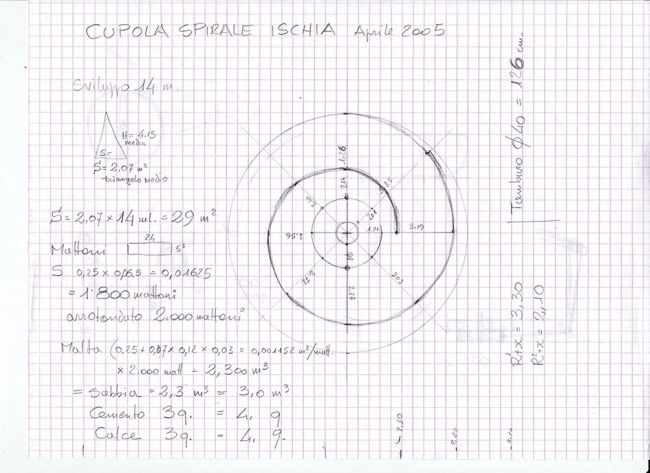 CUPOLA SPIRALE ISCHIA Aprile 2005
Sviluppo 14 m.
H = 4.15
media
S=
S = 2,07 m²
triangolo medio
S = 2,07 × 14 ml. = 29 m²
Mattoni 24 5⁵
S 0,25 × 0,065 = 0,01625
= 1.800 mattoni
arrotondato 2.000 mattoni
Malta (0,25+0,07 × 0,12 × 0,03 = 0,001152 m³/matt.
× 2.000 matt = 2,300 m³
= Sabbia = 2,3 m³ = 3,0 m³
Cemento 3q. = 4, q
Calce 3q. = 4, q.
1.26
2.14
2.56
3.19
3.03
Tamburo ϕ 40 = 126 cm.
R¹+x = 3,30
R²+x = 2,10